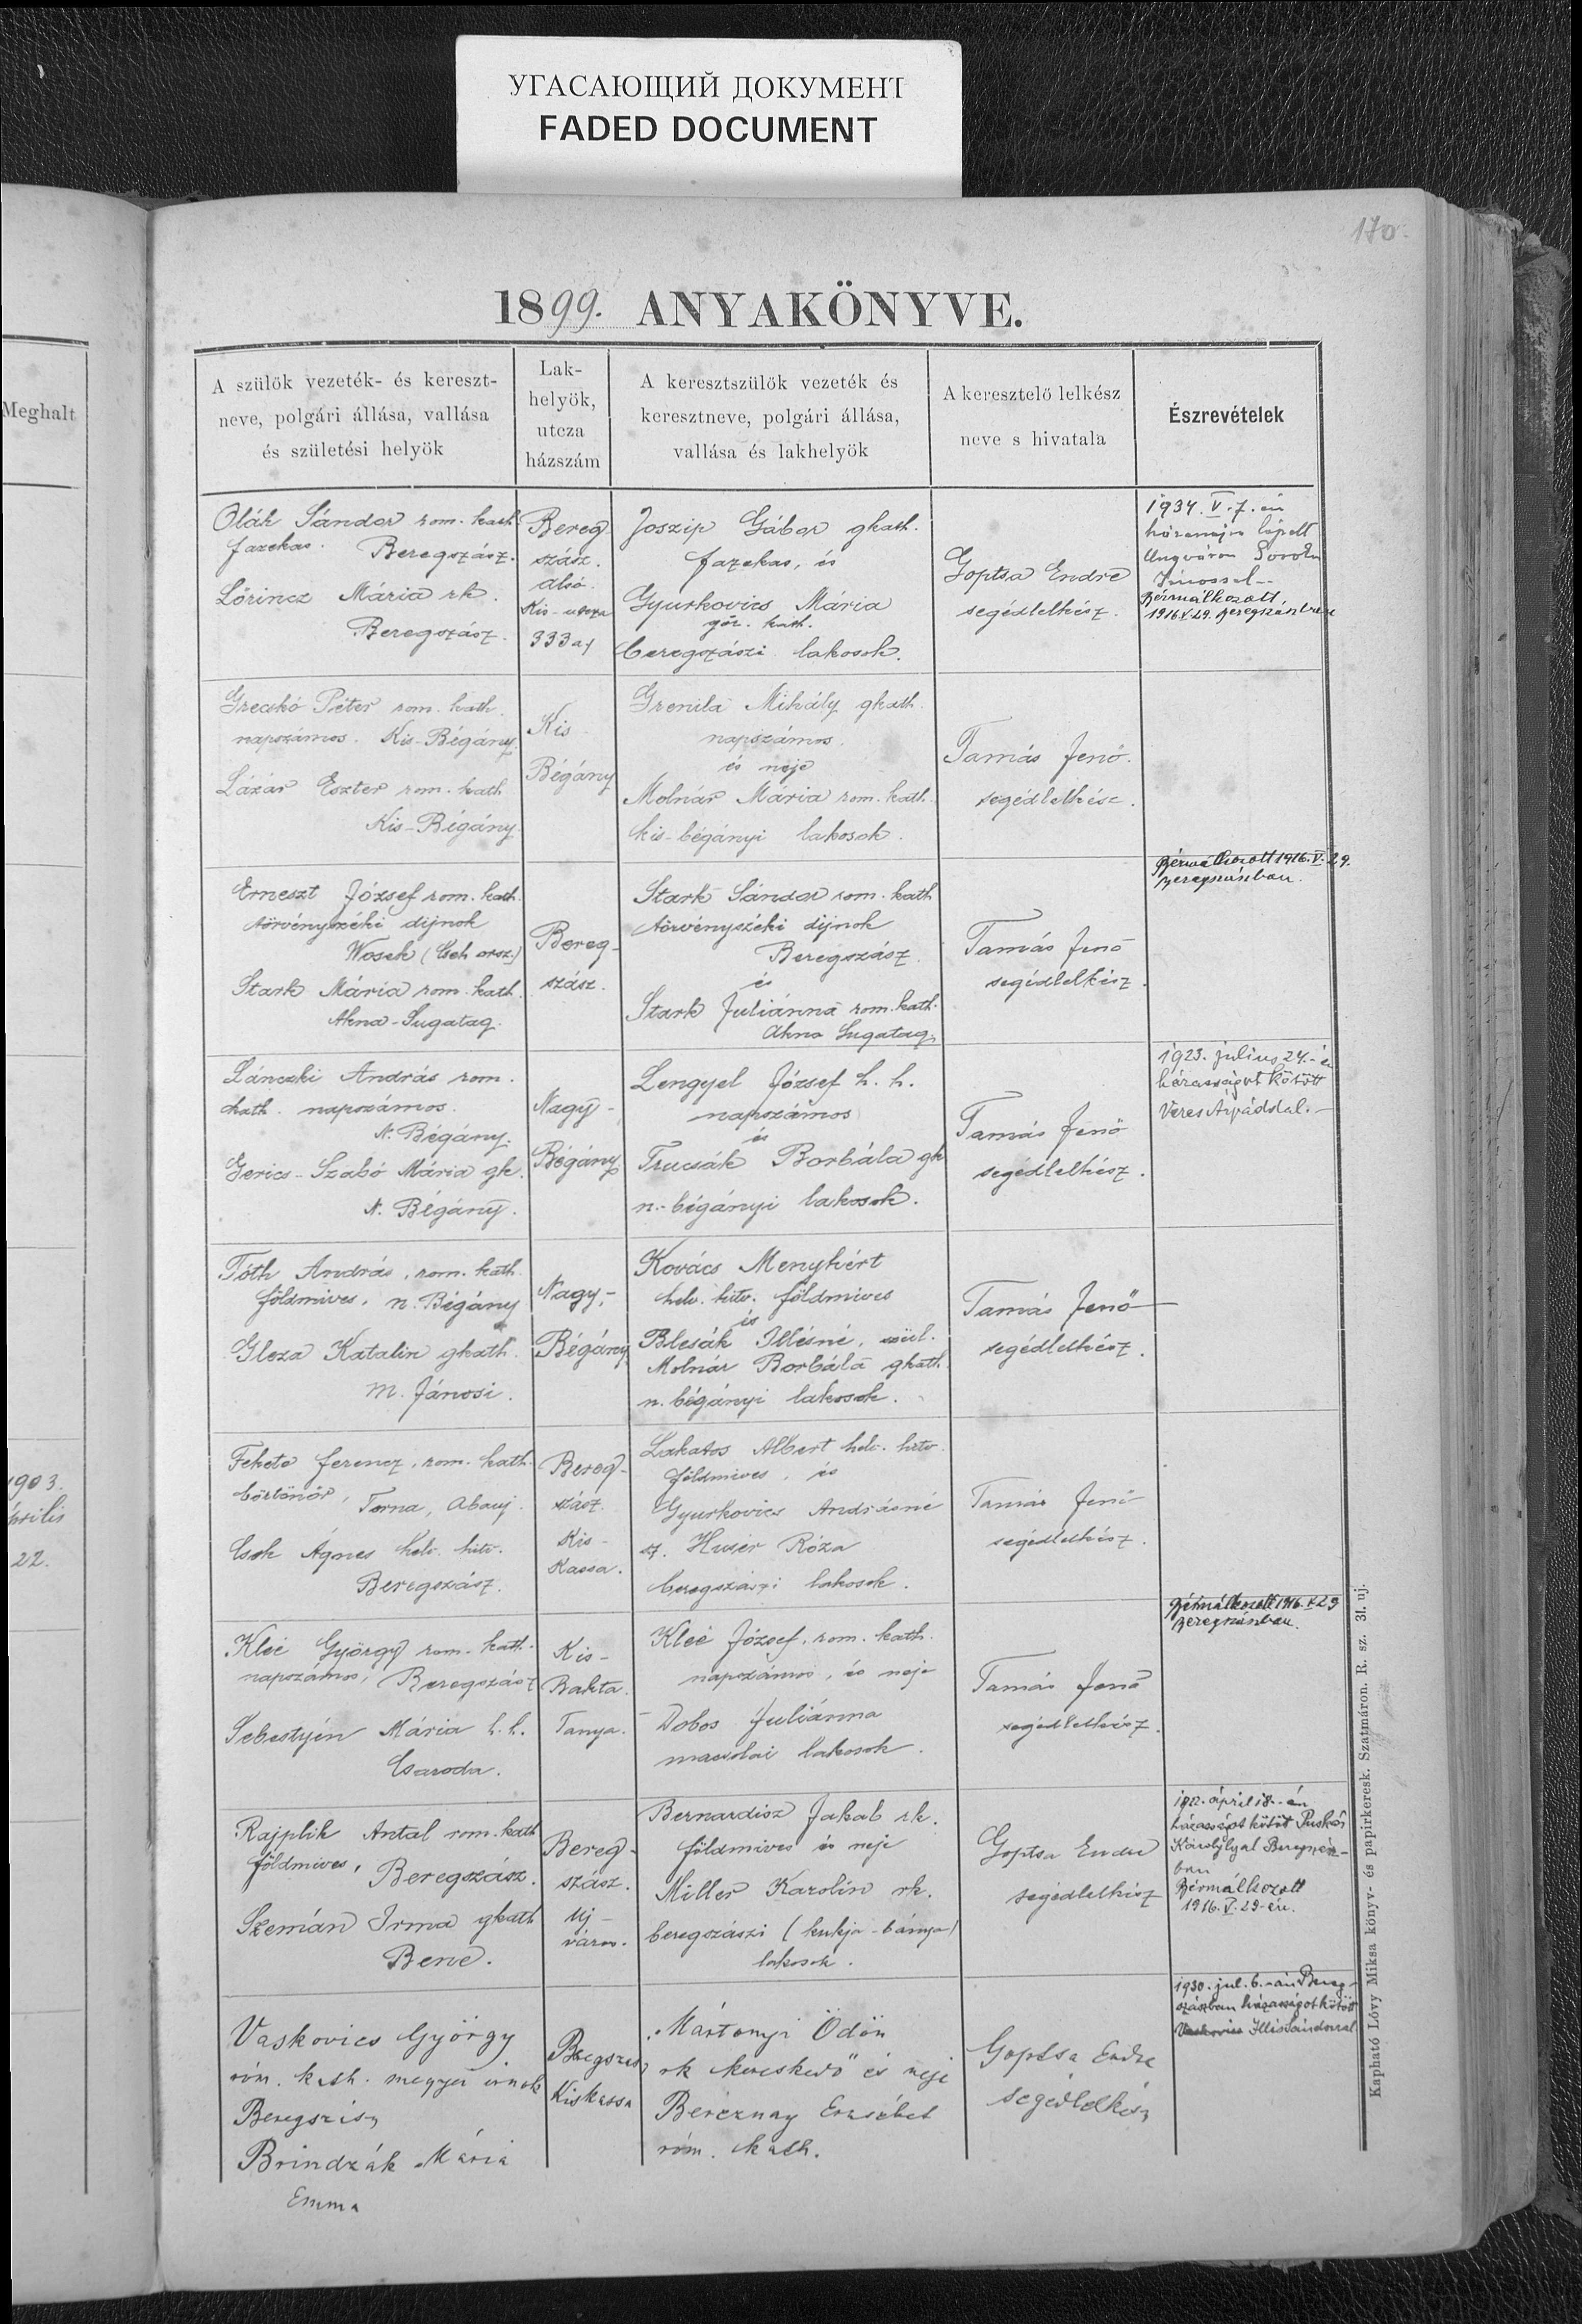 УГАСАЮЩИЙ ДОКУМЕНТ
FADED DOCUMENT
170.
1899. ANYAKÖNYVE.
Meghalt
1903.
április
22.
A szülök vezeték- és kereszt-
neve, polgári állása, vallása
és születési helyök
Lak-
helyök,
utcza
házszám
A keresztszülök vezeték és
keresztneve, polgári állása,
vallása és lakhelyök
A keresztelő lelkész
neve s hivatala
Észrevételek
Oláh Sándor rom. kath.
fazekas. Beregszász.
Lőrincz Mária rk.
Beregszász.
Bereg
szász.
alsó
Kis-utcza
333 a/
Joszip Gábor gkath.
fazekas, és
Gyurkovics Mária
gör. kath.
beregszászi lakosok.
Goptsa Endre
segédlelkész.
1934. V. 7.-én
házasságra lépett
Ungváron
Jánossal.-
Bérmálkozott
1916.V.29. Beregszászban
Grecskó Péter rom. kath.
napszámos. Kis-Bégány.
Lázár Eszter rom. kath
Kis-Bégány
Kis
Bégány
Grenila Mihály gkath.
napszámos.
és neje
Molnár Mária rom. kath.
kis-bégányi lakosok.
Tamás Jenő.
segédlelkész.
Erneszt József rom. kath.
törvényszéki dijnok
Wosek (Cseh orsz.)
Stark Mária rom. kath.
Akna-Sugatag.
Bereg-
szász.
Stark Sándor rom. kath
törvényszéki dijnok
Beregszász.
és
Stark Juliánna rom. kath.
Akna Sugatag.
Tamás Jenő
segédlelkész.
Bérmálkozott 1916. V. 29.
Beregszászban.
Lánczki András rom.
kath. napszámos.
N. Bégány.
Gerics-Szabó Mária gk.
N. Bégány.
Nagy-
Bégány
Lengyel József h. h.
napszámos
és
Trucsák Borbála gk
n.-bégányi lakosok.
Tamás Jenő
segédlelkész.
1923. julius 24.-én
házasságot kötött
Veres Árpáddal.-
Tóth András, rom. kath.
földmives, n. Bégány
Gleza Katalin gkath.
M. Jánosi.
Nagy-
Bégány
Kovács Menyhért
helv. hitv. földmives
és
Blesák Illésné, szül.
Molnár Borbála gkath.
n. bégányi lakosok.
Tamás Jenő
segédlelkész.
Fekete Ferencz, rom. kath.
börtönőr, Torna, Abauj.
Csok Ágnes helv. hitv.
Beregszász.
Bereg-
szász.
Kis-
Kassa.
Lakatos Albert helv. hitv.
földmives, és
Gyurkovics Andrásné
sz. Huszér Róza
beregszászi lakosok.
Tamás Jenő
segédlelkész.
Kléé György rom. kath.
napszámos, Beregszász
Sebestyén Mária h. h.
Csaroda.
Kis-
Bakta
Tanya.
Kléé József, rom. kath.
napszámos, és neje
Dobos Juliánna
macsolai lakosok.
Tamás Jenő
segédlelkész.
Bérmálkozott 1916. V. 29
Beregszászban.
Rajplik Antal rom. kath
földmives, Beregszász.
Szemán Irma gkath
Bene.
Bereg-
szász.
Uj-
város.
Bernardisz Jakab rk.
földmives és neje
Miller Karolin rk.
beregszászi (kukja-bánya)
lakosok.
Goptsa Endre
segédlelkész
április 18.-án
házasságot kötött Puskás
Károlylyal Beregszász-
ban
Bérmálkozott
1916. V. 29-én.
Vaskovics György
róm. kath. megyei írnok
Beregszász
Brindzák Mária
Emma
Beregszász
Kiskassa
Mártonyi Ödön
rk kereskedő és neje
Bereznay Erzsébet
róm. kath.
Goptsa Endre
segédlelkész
1930. jul. 6.-án Bereg-
szászban házasságot kötött
Vaskovics Illés Sándorral
Kapható Lövy Miksa könyv- és papirkeresk. Szatmáron. R. sz. 31. uj.